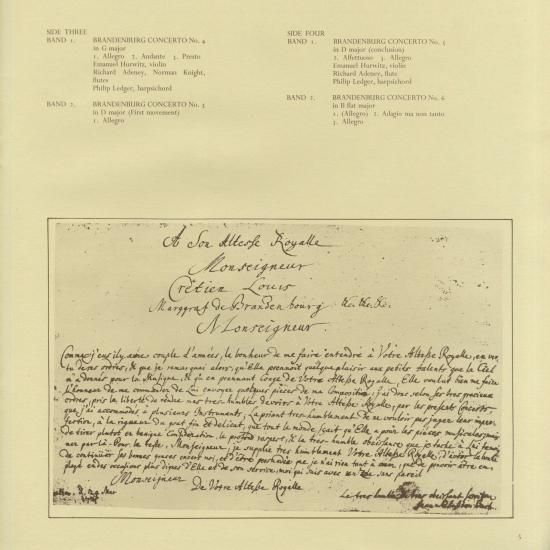 SIDE THREE
BAND 1. BRANDENBURG CONCERTO No. 4
in G major
1. Allegro 2. Andante 3. Presto
Emanuel Hurwitz, violin
Richard Adeney, Norman Knight,
flutes
Philip Ledger, harpsichord
BAND 2. BRANDENBURG CONCERTO No. 5
in D major (First movement)
1. Allegro
SIDE FOUR
BAND 1. BRANDENBURG CONCERTO No. 5
in D major (conclusion)
2. Affettuoso 3. Allegro
Emanuel Hurwitz, violin
Richard Adeney, flute
Philip Ledger, harpsichord
BAND 2. BRANDENBURG CONCERTO No. 6
in B flat major
1. (Allegro) 2. Adagio ma non tanto
3. Allegro
A Son Altesse Royalle
Monseigneur
Crètien Louis
Marggraf de Brandenbourg
Monseigneur.
couple d'années, le bonheur de me faire entendre à Votre Altesse Royalle, en ver,
tu de ses ordres, & que je remarquai alors, qu'Elle prennoit quelque plaisir aux petits talents que le Ciel
m'a donnés pour la Musique, & qu'en prennant Conge de Votre Altesse Royalle, Elle voulut bien me faire
l'honneur de me commander de Lui envoyer quelques pieces de ma Composition: j'ai donc selon ses tres gracieux
ordres, pris la liberté de rendre mes tres humbles devoirs à Votre Altesse Royalle, par les presents Concerts,
que j'ai accommodés à plusieurs Instruments; La priant tres humblement de ne vouloir pas juger leur imper,
fection, à la rigueur du gout fin et delicat, que tout le monde sçait qu'Elle a pour les pièces musicales; mais
de tirer plutot en benigne Consideration, le profond respect, & la tres humble obeissance que je tache à Lui temoi,
gner par là. Pour le reste, Monseigneur, je supplie tres humblement Votre Altesse Royalle, d'avoir la bonté
de continuër ses bonnes graces envers moi, et d'être persuadèe que je n'ai rien tant à cœur, que de pouvoir être em,
ployé en des occasions plus dignes d'Elle et de son service, moi qui suis avec un zele sans pareil
Monseigneur
De Votre Altesse Royalle
Le tres humble & tres obeissant serviteur
5